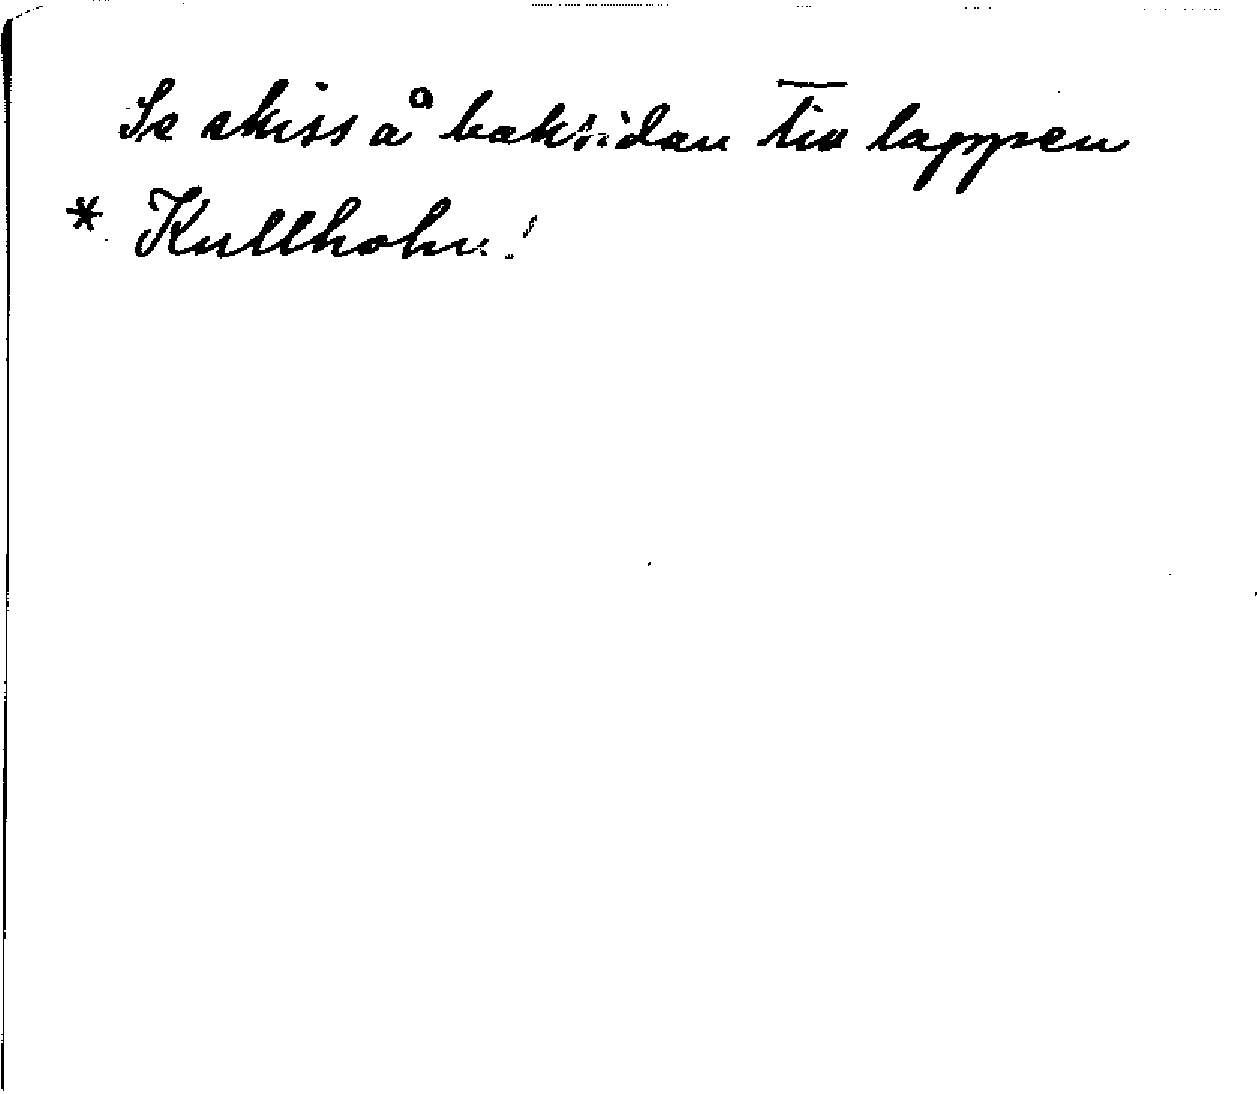 Se skiss å baksidan till lappen
* Kullholm!